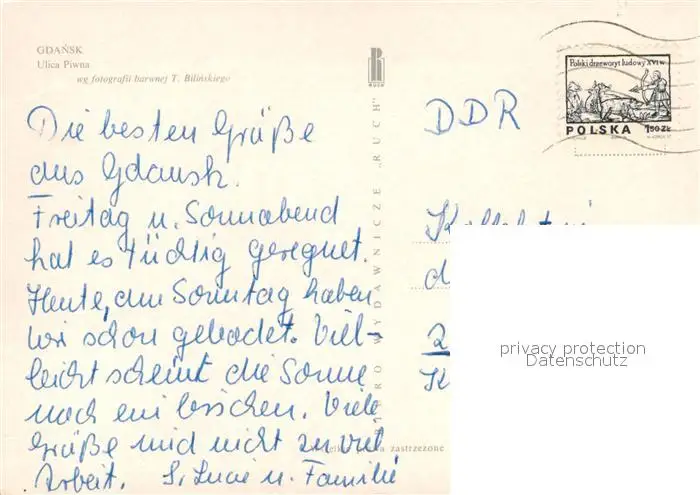 GDAŃSK
Ulica Piwna
wg fotografii barwnej T. Bilińskiego
RUCH
Polski drzeworyt ludowy XVI w.
POLSKA 1,50 ZŁ
BIURO WYDAWNICZE „RUCH”
Die besten Grüße
aus Gdansk.
Freitag u. Sonnabend
hat es tüchtig geregnet.
Heute, am Sonntag haben
wir schon gebadet. Viel-
leicht scheint die Sonne
noch ein bisschen. Viele
Grüße und nicht zu viel
Arbeit. S. Lucie u. Familie
zastrzeżone
DDR
d
2
K
privacy protection
Datenschutz